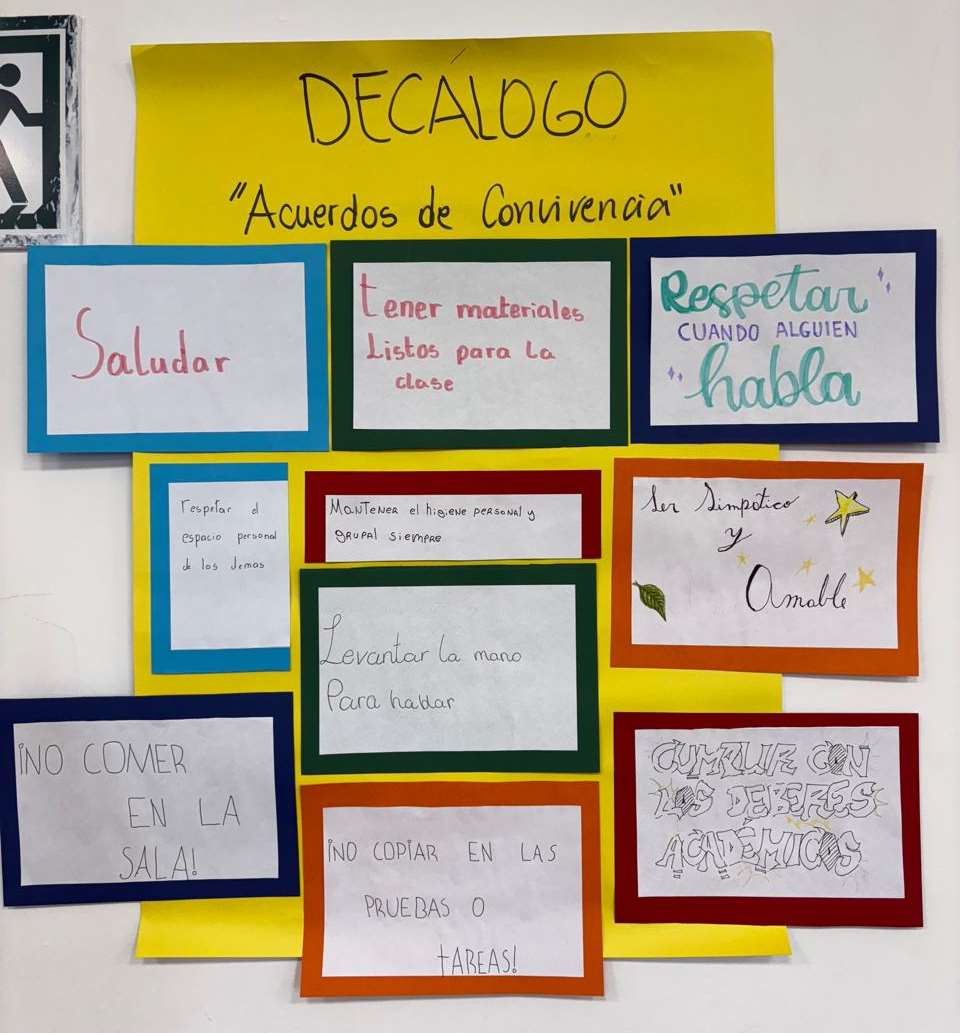 DECÁLOGO
"Acuerdos de Convivencia"
Saludar
tener materiales
Listos para la
clase
Respetar
CUANDO ALGUIEN
habla
respetar el
espacio personal
de los demas
MANTENER el higiene PERSONAL y
GRUPAL SIEMPRE
Ser Simpático
y
Amable
Levantar la mano
Para hablar
¡NO COMER
EN LA
SALA!
¡NO COPIAR EN LAS
PRUEBAS O
tAREAS!
CUMPLIR CON
LOS DEBERES
ACADÉMICOS